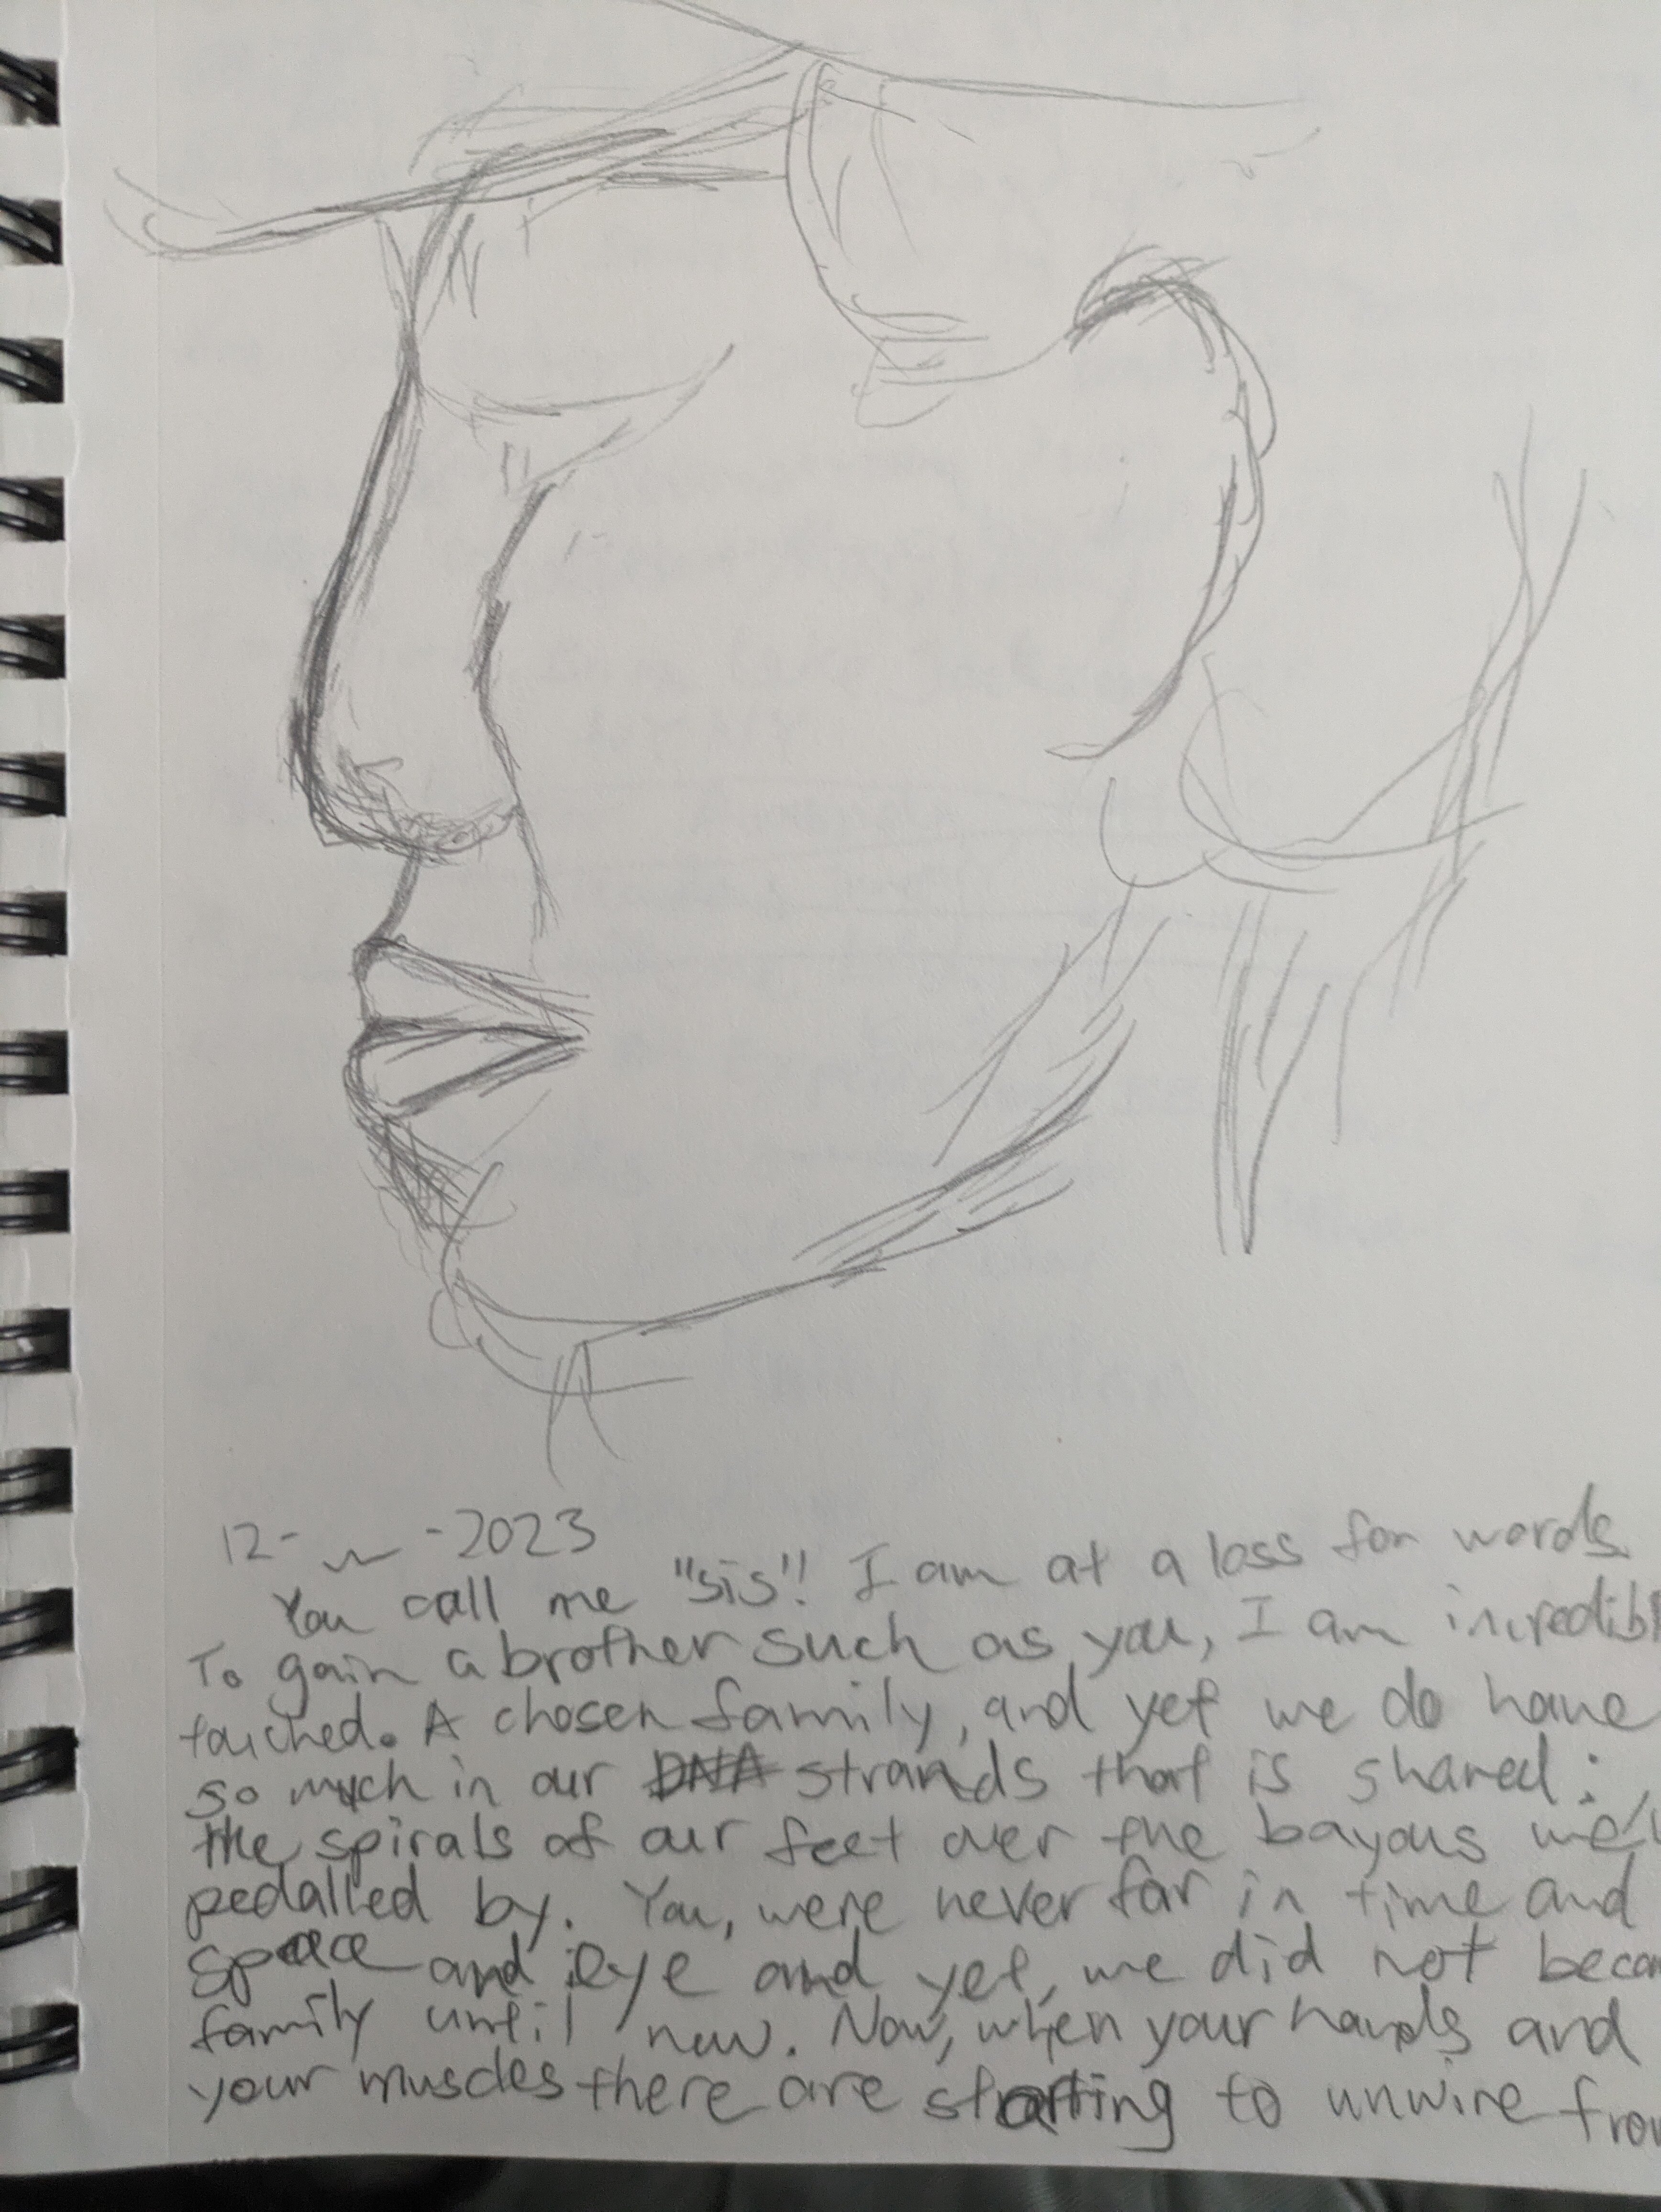 12- -2023
You call me "sis"! I am at a loss for words
To gain a brother such as you, I am incredibl
touched. A chosen family, and yet we do have
so much in our DNA strands that is shared:
the spirals of our feet over the bayous we'v
pedalled by. You, were never far in time and
space and eye and yet, we did not becom
family until now. Now, when your hands and
your muscles there are starting to unwire from